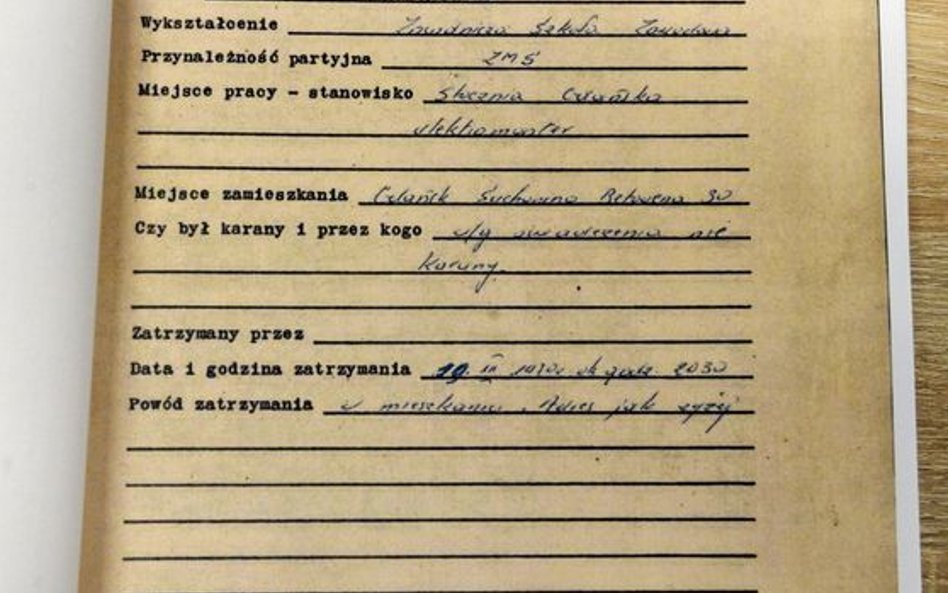 Wykształcenie Zasadnicza Szkoła Zawodowa
Przynależność partyjna ZMS
Miejsce pracy - stanowisko Stocznia Gdańska
elektromonter
Miejsce zamieszkania Gdańsk Suchanino Betowena 30
Czy był karany i przez kogo w/g oświadczenia nie
karany.
Zatrzymany przez
Data i godzina zatrzymania 19. 1970r ok godz. 2030
Powód zatrzymania w mieszkaniu. Adres jak wyżej